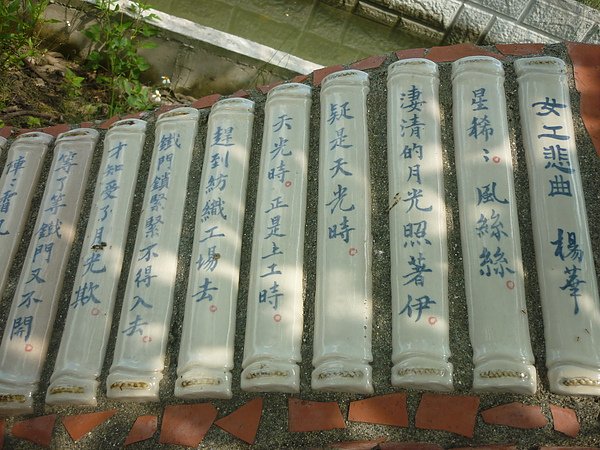 女工悲曲 楊華
星稀稀。風絲絲。
淒清的月光照著伊。
疑是天光時。
天光時。正是上工時。
趕到紡織工場去
鐵門鎖緊緊不得入去。
才知受了月光欺。
等了等鐵門又不開。